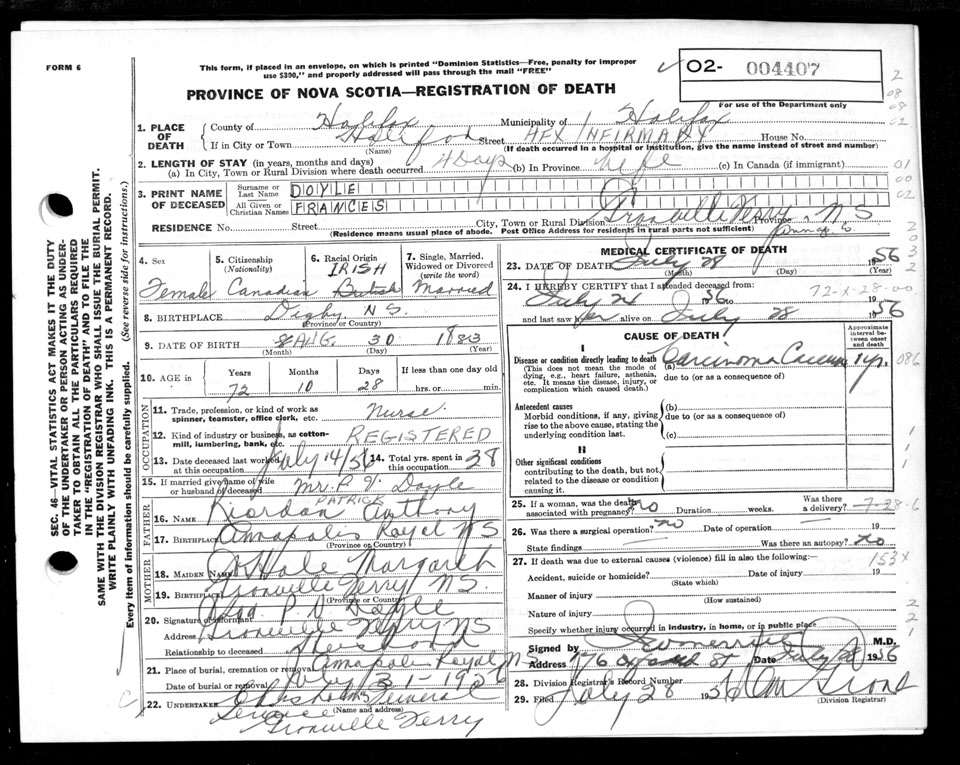 FORM 6
This form, if placed in an envelope, on which is printed "Dominion Statistics—Free, penalty for improper
use $300," and properly addressed will pass through the mail "FREE"
O2- 004407
PROVINCE OF NOVA SCOTIA—REGISTRATION OF DEATH
For use of the Department only
1. PLACE OF DEATH
County of Halifax Municipality of Halifax
If in City or Town Halifax Street HFX INFIRMARY House No.
(Name) (If death occurred in a hospital or institution, give the name instead of street and number)
2. LENGTH OF STAY (in years, months and days)
(a) In City, Town or Rural Division where death occurred 4 Days (b) In Province Life (c) In Canada (if immigrant)
3. PRINT NAME OF DECEASED
Surname or Last Name DOYLE
All Given or Christian Names FRANCES
RESIDENCE No. Street City, Town or Rural Division Granville Ferry Province N S
(Residence means usual place of abode. Post Office Address for residents in rural parts not sufficient) Annap Co.
4. Sex Female
5. Citizenship (Nationality) Canadian
6. Racial Origin IRISH British
7. Single, Married, Widowed or Divorced (write the word) Married
8. BIRTHPLACE Digby N S.
(Province or Country)
9. DATE OF BIRTH AUG. 30 1883
(Month) (Day) (Year)
10. AGE in Years Months Days If less than one day old
72 10 28 hrs. or min.
OCCUPATION
11. Trade, profession, or kind of work as
spinner, teamster, office clerk, etc. Nurse.
12. Kind of industry or business, as cotton-
mill, lumbering, bank, etc. REGISTERED
13. Date deceased last worked at this occupation July 14/56
14. Total yrs. spent in this occupation 38
15. If married give name of wife
or husband of deceased Mr. P. V. Doyle
FATHER
PATRICK
16. NAME Riordan Anthony
17. BIRTHPLACE Annapolis Royal NS
(Province or Country)
MOTHER
18. MAIDEN NAME O'Hale Margaret
19. BIRTHPLACE Granville Ferry NS.
(Province or Country)
20. Signature of informant P. V. Doyle
Address Granville Ferry NS
Relationship to deceased Husband
21. Place of burial, cremation or removal Annapolis Royal NS
Date of burial or removal July 31-1956
22. UNDERTAKER Funeral
Service (Name and address)
Granville Ferry
MEDICAL CERTIFICATE OF DEATH
23. DATE OF DEATH July 28 1956
(Month) (Day) (Year)
24. I HEREBY CERTIFY that I attended deceased from:
July 24 56 to 72-X-28-00 19
and last saw her alive on July 28 1956
CAUSE OF DEATH
Approximate interval between onset and death
I
Disease or condition directly leading to death (a) Carcinoma Caecum 1 yr. 086
(This does not mean the mode of
dying, e.g., heart failure, asthenia,
etc. It means the disease, injury, or
complication which caused death.)
due to (or as a consequence of)
Antecedent causes (b)
Morbid conditions, if any, giving
rise to the above cause, stating the
underlying condition last.
due to (or as a consequence of)
(c)
II
Other significant conditions
contributing to the death, but not
related to the disease or condition
causing it.
25. If a woman, was the death
associated with pregnancy? no Duration weeks. Was there a delivery? 7-28-6
26. Was there a surgical operation? no Date of operation 19
State findings Was there an autopsy? no
27. If death was due to external causes (violence) fill in also the following:— 153x
Accident, suicide or homicide? Date of injury 19
(State which)
Manner of injury
(How sustained)
Nature of injury
Specify whether injury occurred in industry, in home, or in public place
Signed by M.D.
Address 176 Oxford St Date July 1956
28. Division Registrar's Record Number
29. Filed July 28 1956
(Division Registrar)
SEC. 46 - VITAL STATISTICS ACT MAKES IT THE DUTY
OF THE UNDERTAKER OR PERSON ACTING AS UNDER-
TAKER TO OBTAIN ALL THE PARTICULARS REQUIRED
IN THE "REGISTRATION OF DEATH" AND TO FILE THE
SAME WITH THE DIVISION REGISTRAR WHO SHALL ISSUE THE BURIAL PERMIT.
WRITE PLAINLY WITH UNFADING INK. THIS IS A PERMANENT RECORD.
Every item of information should be carefully supplied. (See reverse side for instructions.)